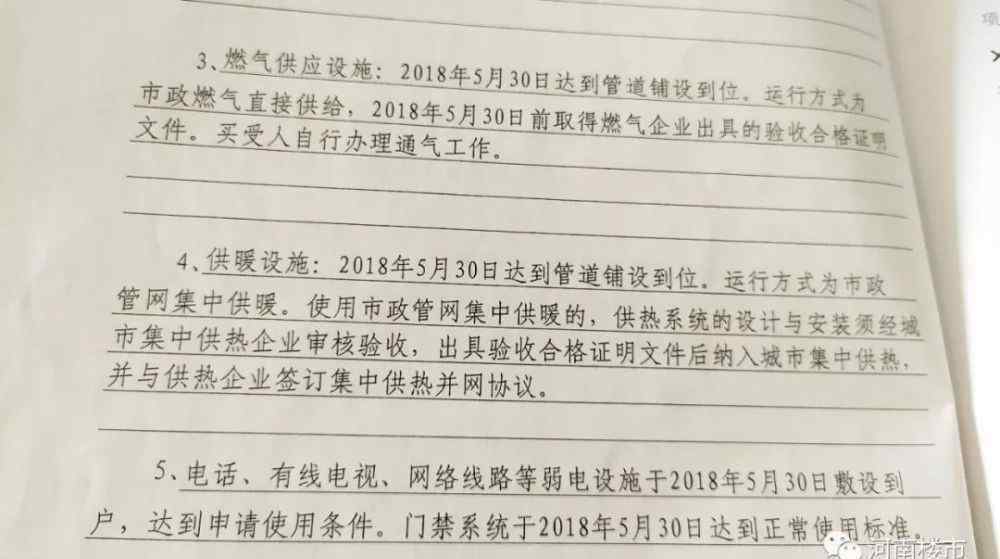 3、燃气供应设施：2018年5月30日达到管道铺设到位。运行方式为
市政燃气直接供给，2018年5月30日前取得燃气企业出具的验收合格证明
文件。买受人自行办理通气工作。
4、供暖设施：2018年5月30日达到管道铺设到位。运行方式为市政
管网集中供暖。使用市政管网集中供暖的，供热系统的设计与安装须经城
市集中供热企业审核验收，出具验收合格证明文件后纳入城市集中供热，
并与供热企业签订集中供热并网协议。
5、电话、有线电视、网络线路等弱电设施于2018年5月30日敷设到
户，达到申请使用条件。门禁系统于2018年5月30日达到正常使用标准。
河南楼市